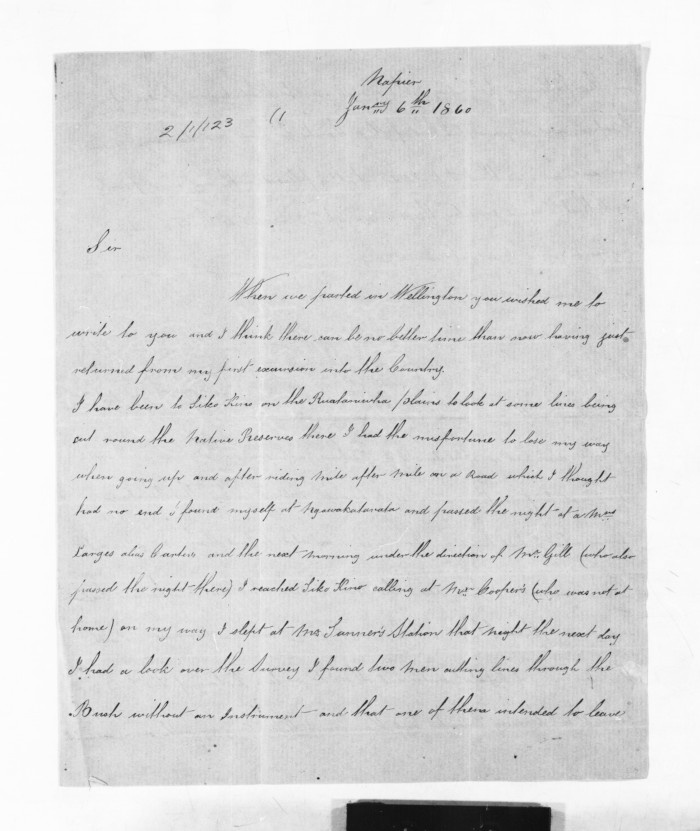 Napier
Janry 6th 1860
2/1/123 (1
Sir
When we parted in Wellington you wished me to
write to you and I think there can be no better time than now having just
returned from my first excursion into the Country.
I have been to Tiko Kino on the Ruataniwha plains to look at some lines being
cut round the Native Preserves there I had the misfortune to lose my way
when going up and after riding mile after mile on a Road which I thought
had no end I found myself at Ngawakatarata and passed the night at a Mrs
Farges alias Carters and the next morning under the direction of Mr. Gill (who also
passed the night there) I reached Tiko Kino calling at Mr Cooper's (who was not at
home) on my way I slept at Mr Tanner's Station that night the next day
I had a look over the Survey I found two men cutting lines through the
Bush without an Instrument and that one of them intended to leave